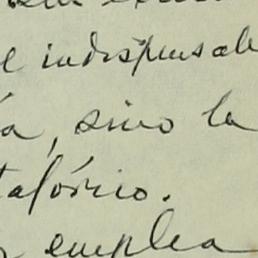 e indispensab
a, sino la
tafórico.
emplea